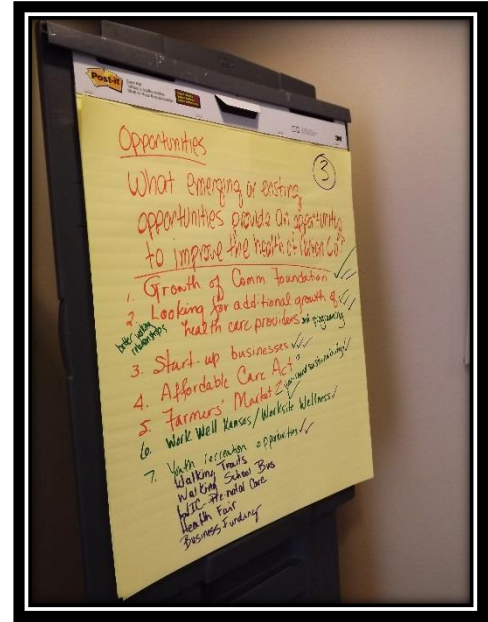 Post-it
3M
Opportunities
3
What emerging or existing
opportunities provide an opportunity
to improve the health of Co?
1. Growth of Comm Foundation
2. Looking for additional growth of
health care providers and programming
better working relationships
3. Start-up businesses
4. Affordable Care Act
5. Farmers' Market
6. Work Well Kansas/Worksite Wellness
7. Youth recreation opportunities
Walking Trails
Walking School Bus
WIC-Pre-natal Care
Health Fair
Business Funding